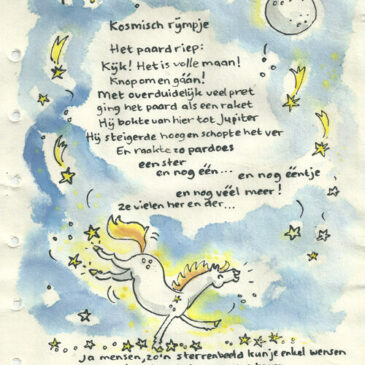 Kosmisch rijmpje
Het paard riep:
Kijk! Het is volle maan!
Knop om en gáán!
Met overduidelijk veel pret
ging het paard als een raket
Hij bokte van hier tot Jupiter
Hij steigerde hoog en schopte het ver
En raakte zo pardoes
een ster
en nog één...
en nog ééntje
en nog véél meer!
ze vielen her en der...
Ja mensen, zo'n sterrenbeeld kun je enkel wensen